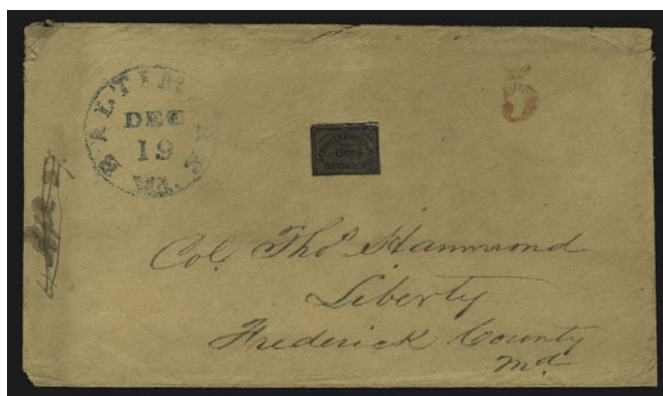 BALTIMORE
DEC
19
Md.
5
Col. Thos Hammond
Liberty
Frederick County
Md.